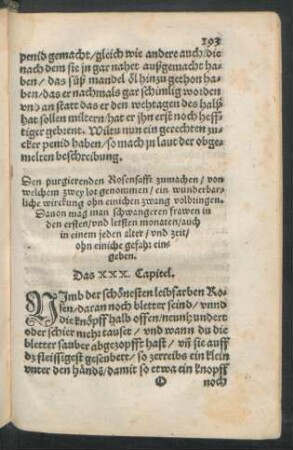 193
penid gemacht/gleich wie andere auch/die
nach dem sie jn gar nahet außgemacht ha-
ben/das süß mandel öl hinzu gethon ha-
ben/das er nachmals gar schimlig worden
vnd an statt das er den wehtagen des halß
hat sollen miltern/hat er jhn erst noch heff-
tiger gebrent. Wiltu nun ein gerechten zu-
cker penid haben/so mach jn laut der obge-
melten beschreibung.
Den purgierenden Rosensafft zumachen/von
welchem zwey lot genommen/ein wunderbar-
liche wirckung ohn einichen zwang volbringen.
Dauon mag man schwangeren frawen in
den ersten/vnd letsten monaten/auch
in einem jeden alter/vnd zeit/
ohn einiche gefahr ein-
geben.
Das XXX. Capitel.
NImb der schönesten leibfarben Ro-
sen/daran noch bletter seind/vnnd
die knöpff halb offen/neunhundert
oder schier nicht tauset/vnd wann du die
bletter sauber abgezopfft hast/vñ sie auff
dz fleissigest geseubert/so zerreibs ein klein
vnter den händẽ/damit so etwa ein knopff
O noch